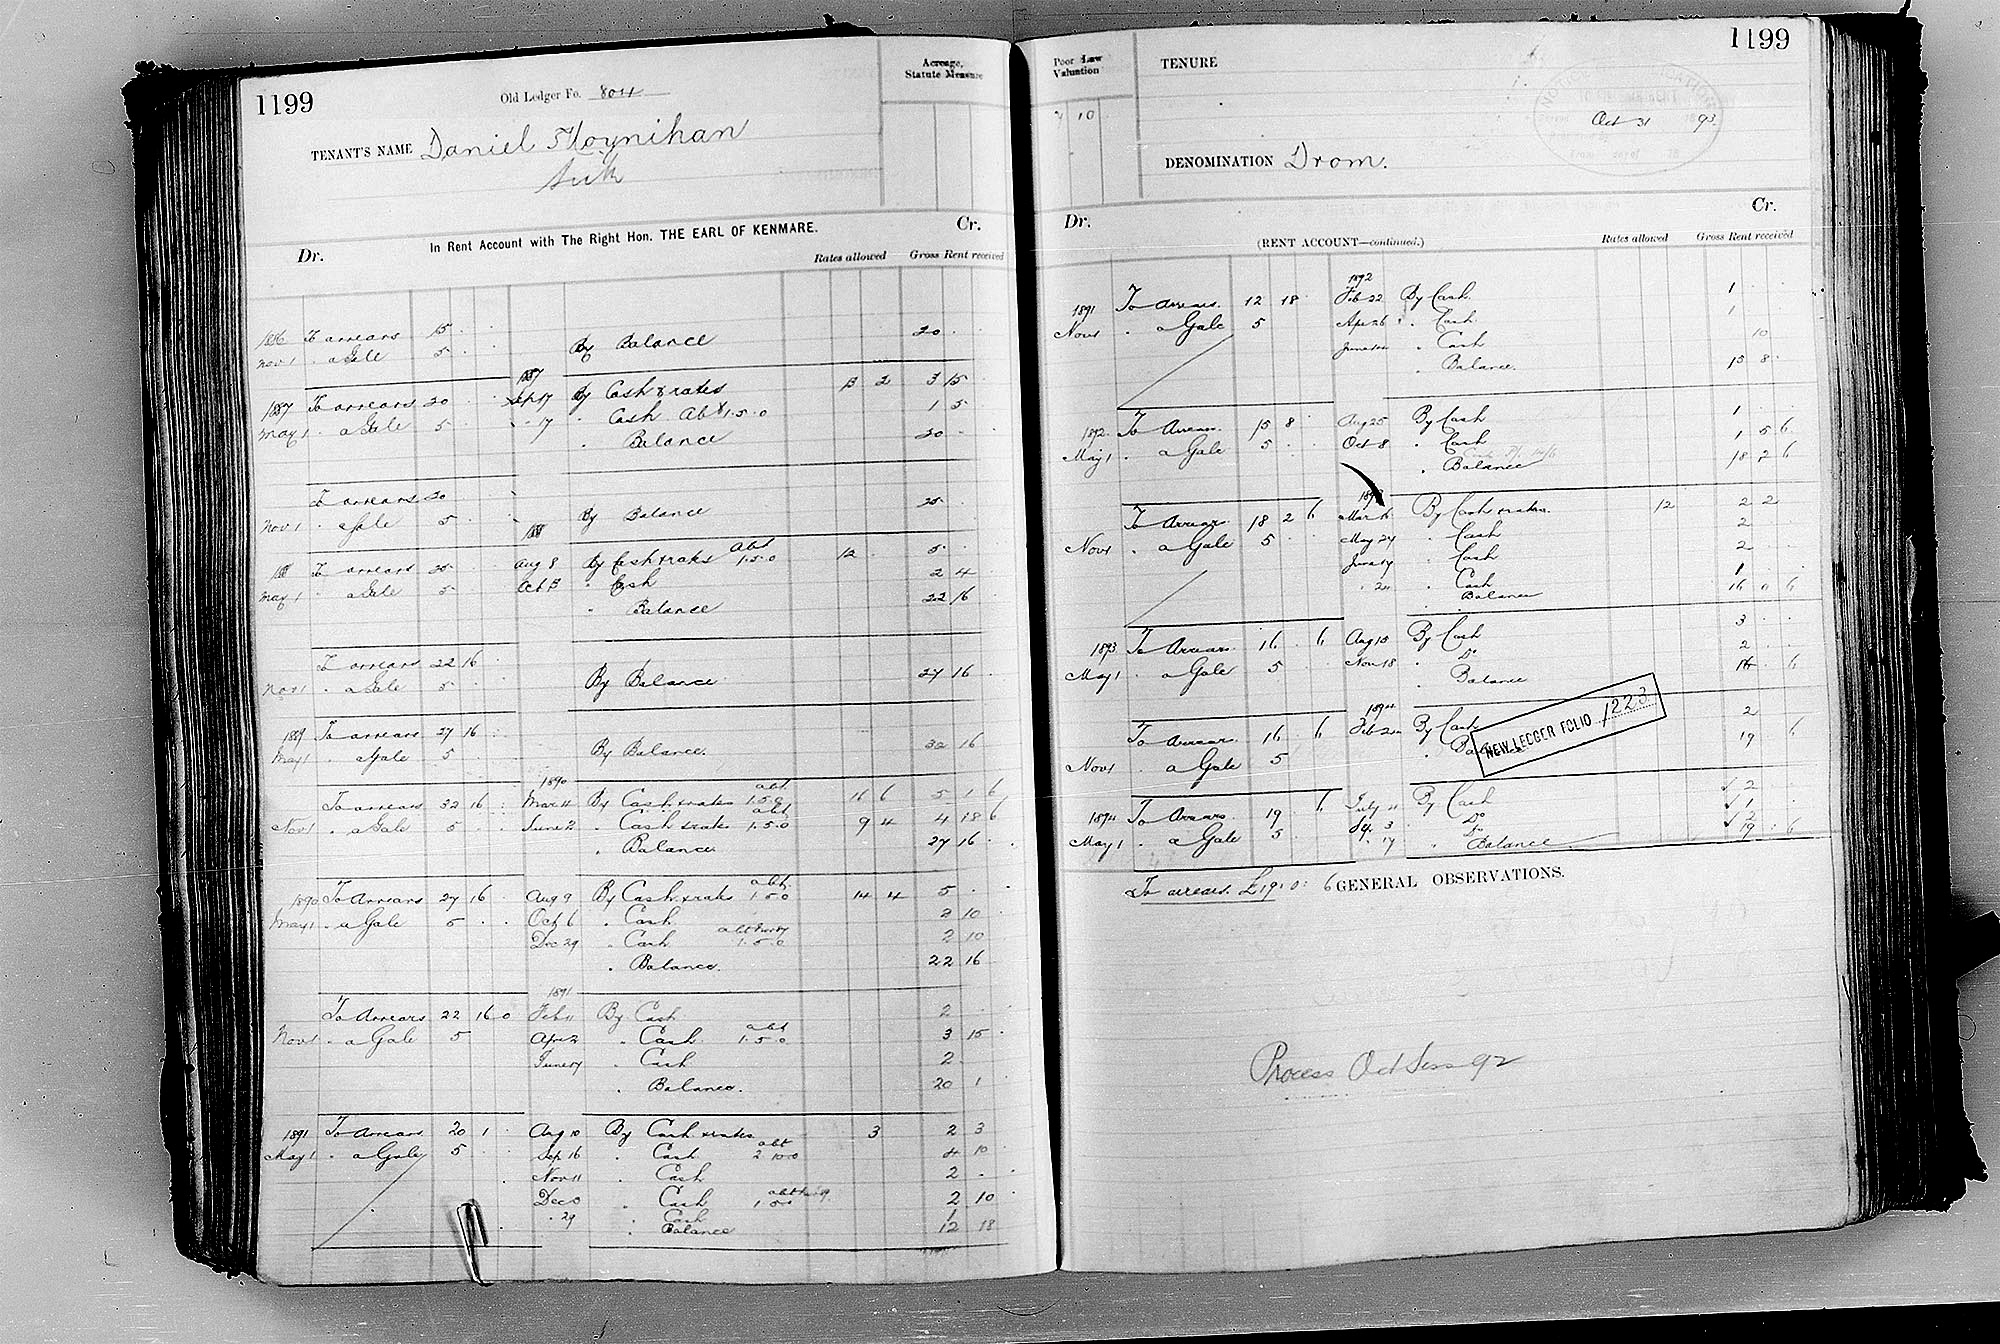 1199
Old Ledger Fo. 804
Acreage,
Statute Measure
TENANT'S NAME Daniel Moynihan
In Rent Account with The Right Hon. THE EARL OF KENMARE.
Dr. Cr.
Rates allowed Gross Rent received
1886 To arrears 15 . .
Nov 1 . a Gale 5 . . By Balance 20 . .
1887
1887 To arrears 20 . . Sep 17 By Cash & rates 13 2 3 15 .
May 1 . a Gale 5 . . . 17 . Cash Abt 1.5.0 1 5 .
. Balance 20 . .
To arrears 20 . .
Nov 1 . a Gale 5 . . By Balance 25 . .
1888
1888 To arrears 25 . . Aug 8 By Cash & rates Abt 1.5.0 12 . 5 . .
May 1 . a Gale 5 . . Oct 13 . Cash 2 4
. Balance 22 16
To arrears 22 16
Nov 1 . a Gale 5 . . By Balance 27 16 .
1889 To arrears 27 16
May 1 . a Gale 5 . By Balance. 32 16
1890
To arrears 32 16 . Mar 11 By Cash & rates abt 1.5.0 16 6 5 1 6
Nov 1 . a Gale 5 . . June 2 . Cash & rates abt 1.5.0 9 4 4 18 6
. Balance 27 16 .
1890 To Arrears 27 16 . Aug 9 By Cash & rates abt 1.5.0 14 4 5 . .
May 1 . a Gale 5 . . Oct 6 . Cash 2 10
Dec 29 . Cash 1.5.0 2 10
. Balance. 22 16
1891
To Arrears 22 16 0 Feb 11 By Cash 2 .
Nov 1 . a Gale 5 Apr 2 . Cash abt 1.5.0 3 15 .
June 17 . Cash 2 .
. Balance. 20 1
1891 To Arrears 20 1 . Aug 10 By Cash & rates 3 2 3
May 1 . a Gale 5 . . Sep 16 . Cash abt 2 10 0 4 10
Nov 11 . Cash 2 .
Dec . Cash 1.5.0 2 10
. 29 . Cash 1
. Balance 12 18
1199
Poor Law
Valuation
10
TENURE
Oct 31 93
DENOMINATION Drom.
Dr. Cr.
(RENT ACCOUNT—continued.)
Rates allowed Gross Rent received
1892
1891 To arrears. 12 18 . Feb 22 By Cash. 1 . .
Nov 1 . a Gale 5 Apr 26 . Cash 1
June . Cash 10
. Balance. 15 8 .
1892. To Arrears. 15 8 . Aug 25 By Cash 1 . .
May 1 . a Gale 5 . . Oct 8 . Cash 1 5 6
. Balance 18 2 6
1893
To Arrears 18 2 6 Mar 16 By Cash & rates. 12 2 2
Nov 1 . a Gale 5 . . May 27 . Cash 2
June 17 . Cash 2 .
. 24 . Cash 1 .
Balance 16 0 6
1893 To Arrears. 16 . 6 Aug 15 By Cash 3 . .
May 1 . a Gale 5 Nov 18 . Do 2 . .
. Balance 16 . 6
1894
To Arrears. 16 . 6 Feb 2 By Cash 2
Nov 1 . a Gale 5 . Balance 19 6
NEW LEDGER FOLIO 1223
1894 To Arrears 19 . 6 July 11 By Cash ✓ 2 . .
May 1 . a Gale 5 . . 3 Do ✓ 1 . .
. 17 Do ✓ 2
. Balance 19 . 6
To arrears. £19. 0: 6
GENERAL OBSERVATIONS.
Process Oct Sess 92